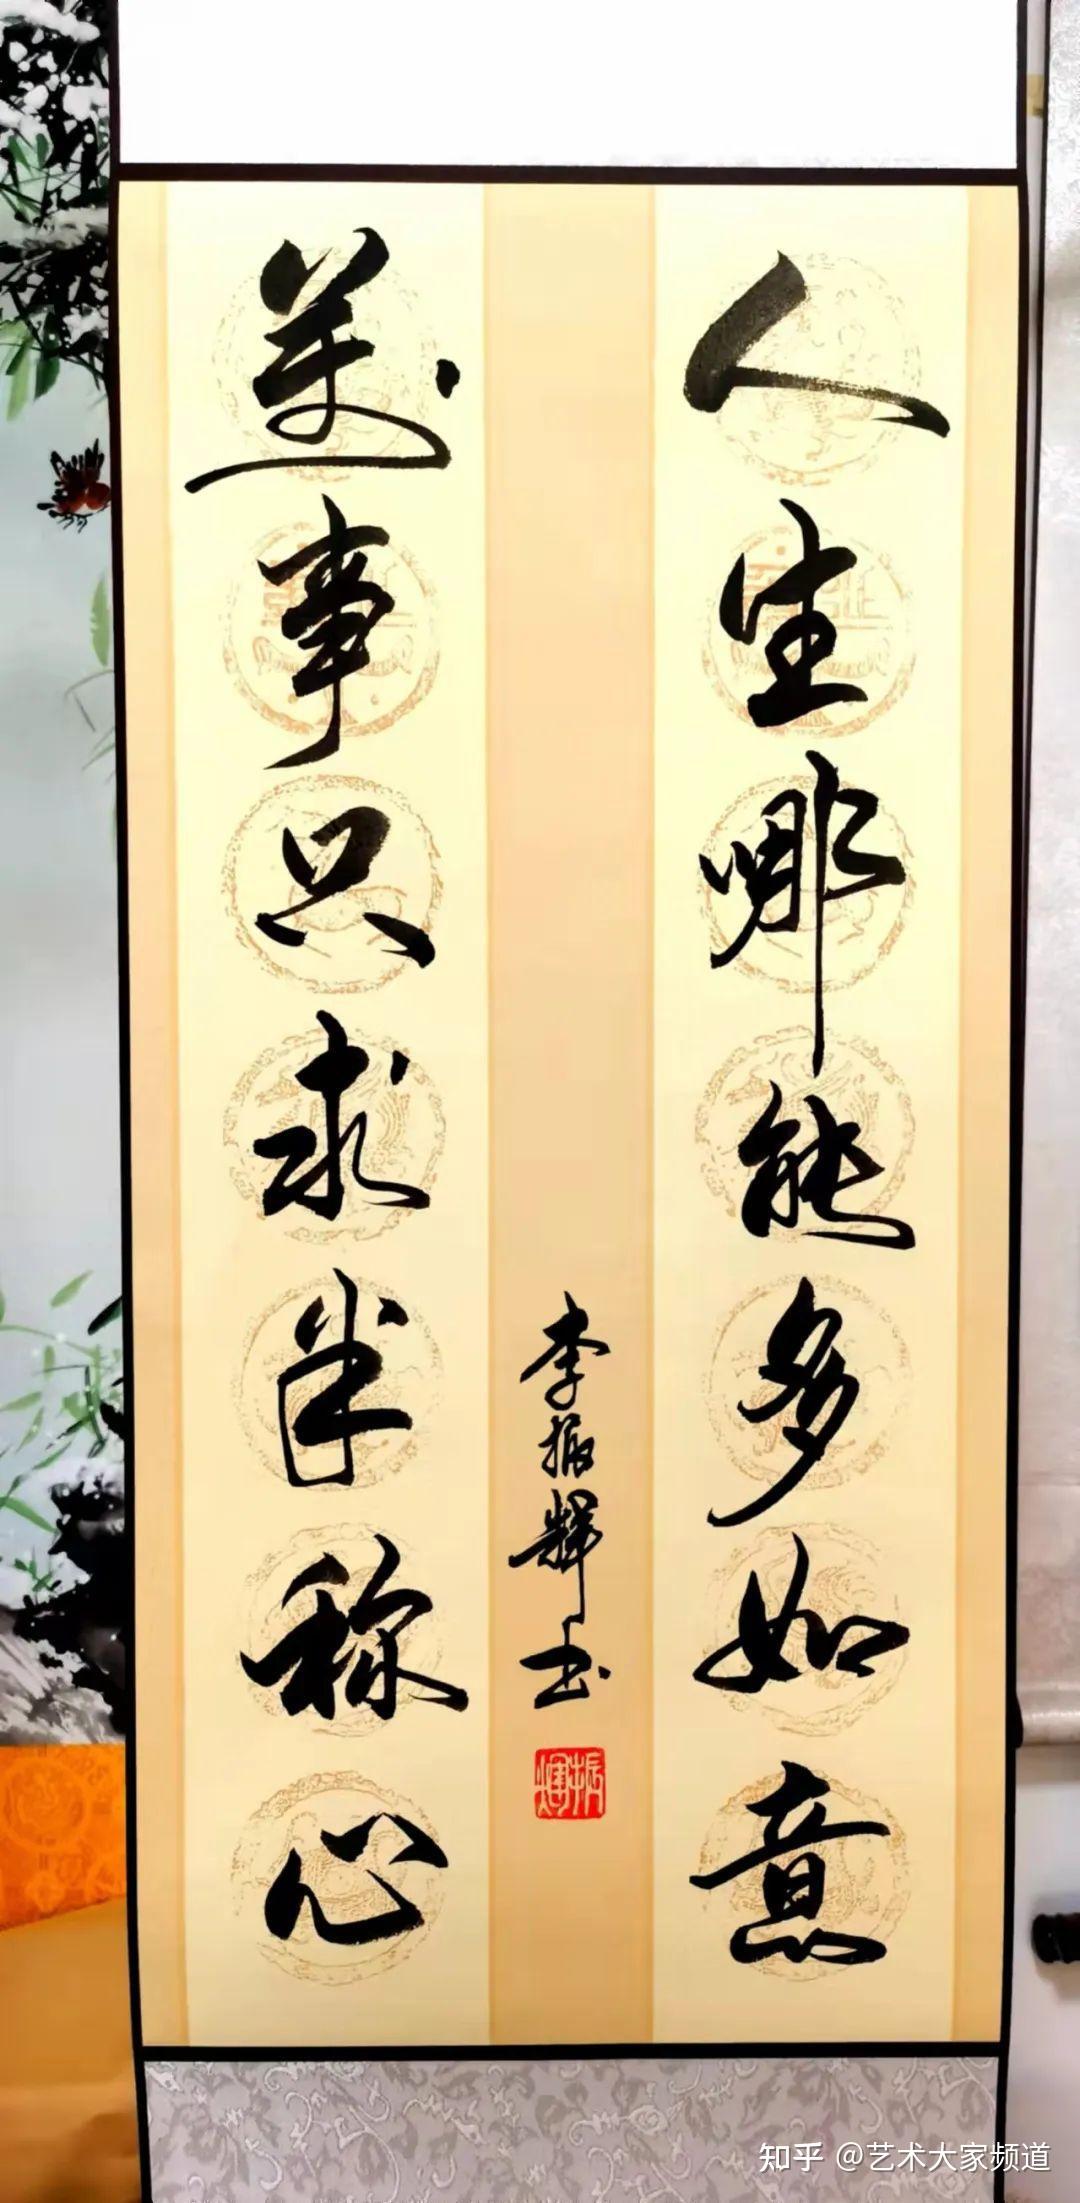 人生哪能多如意
萬事只求半称心
李振輝书
振輝
知乎 @艺术大家频道